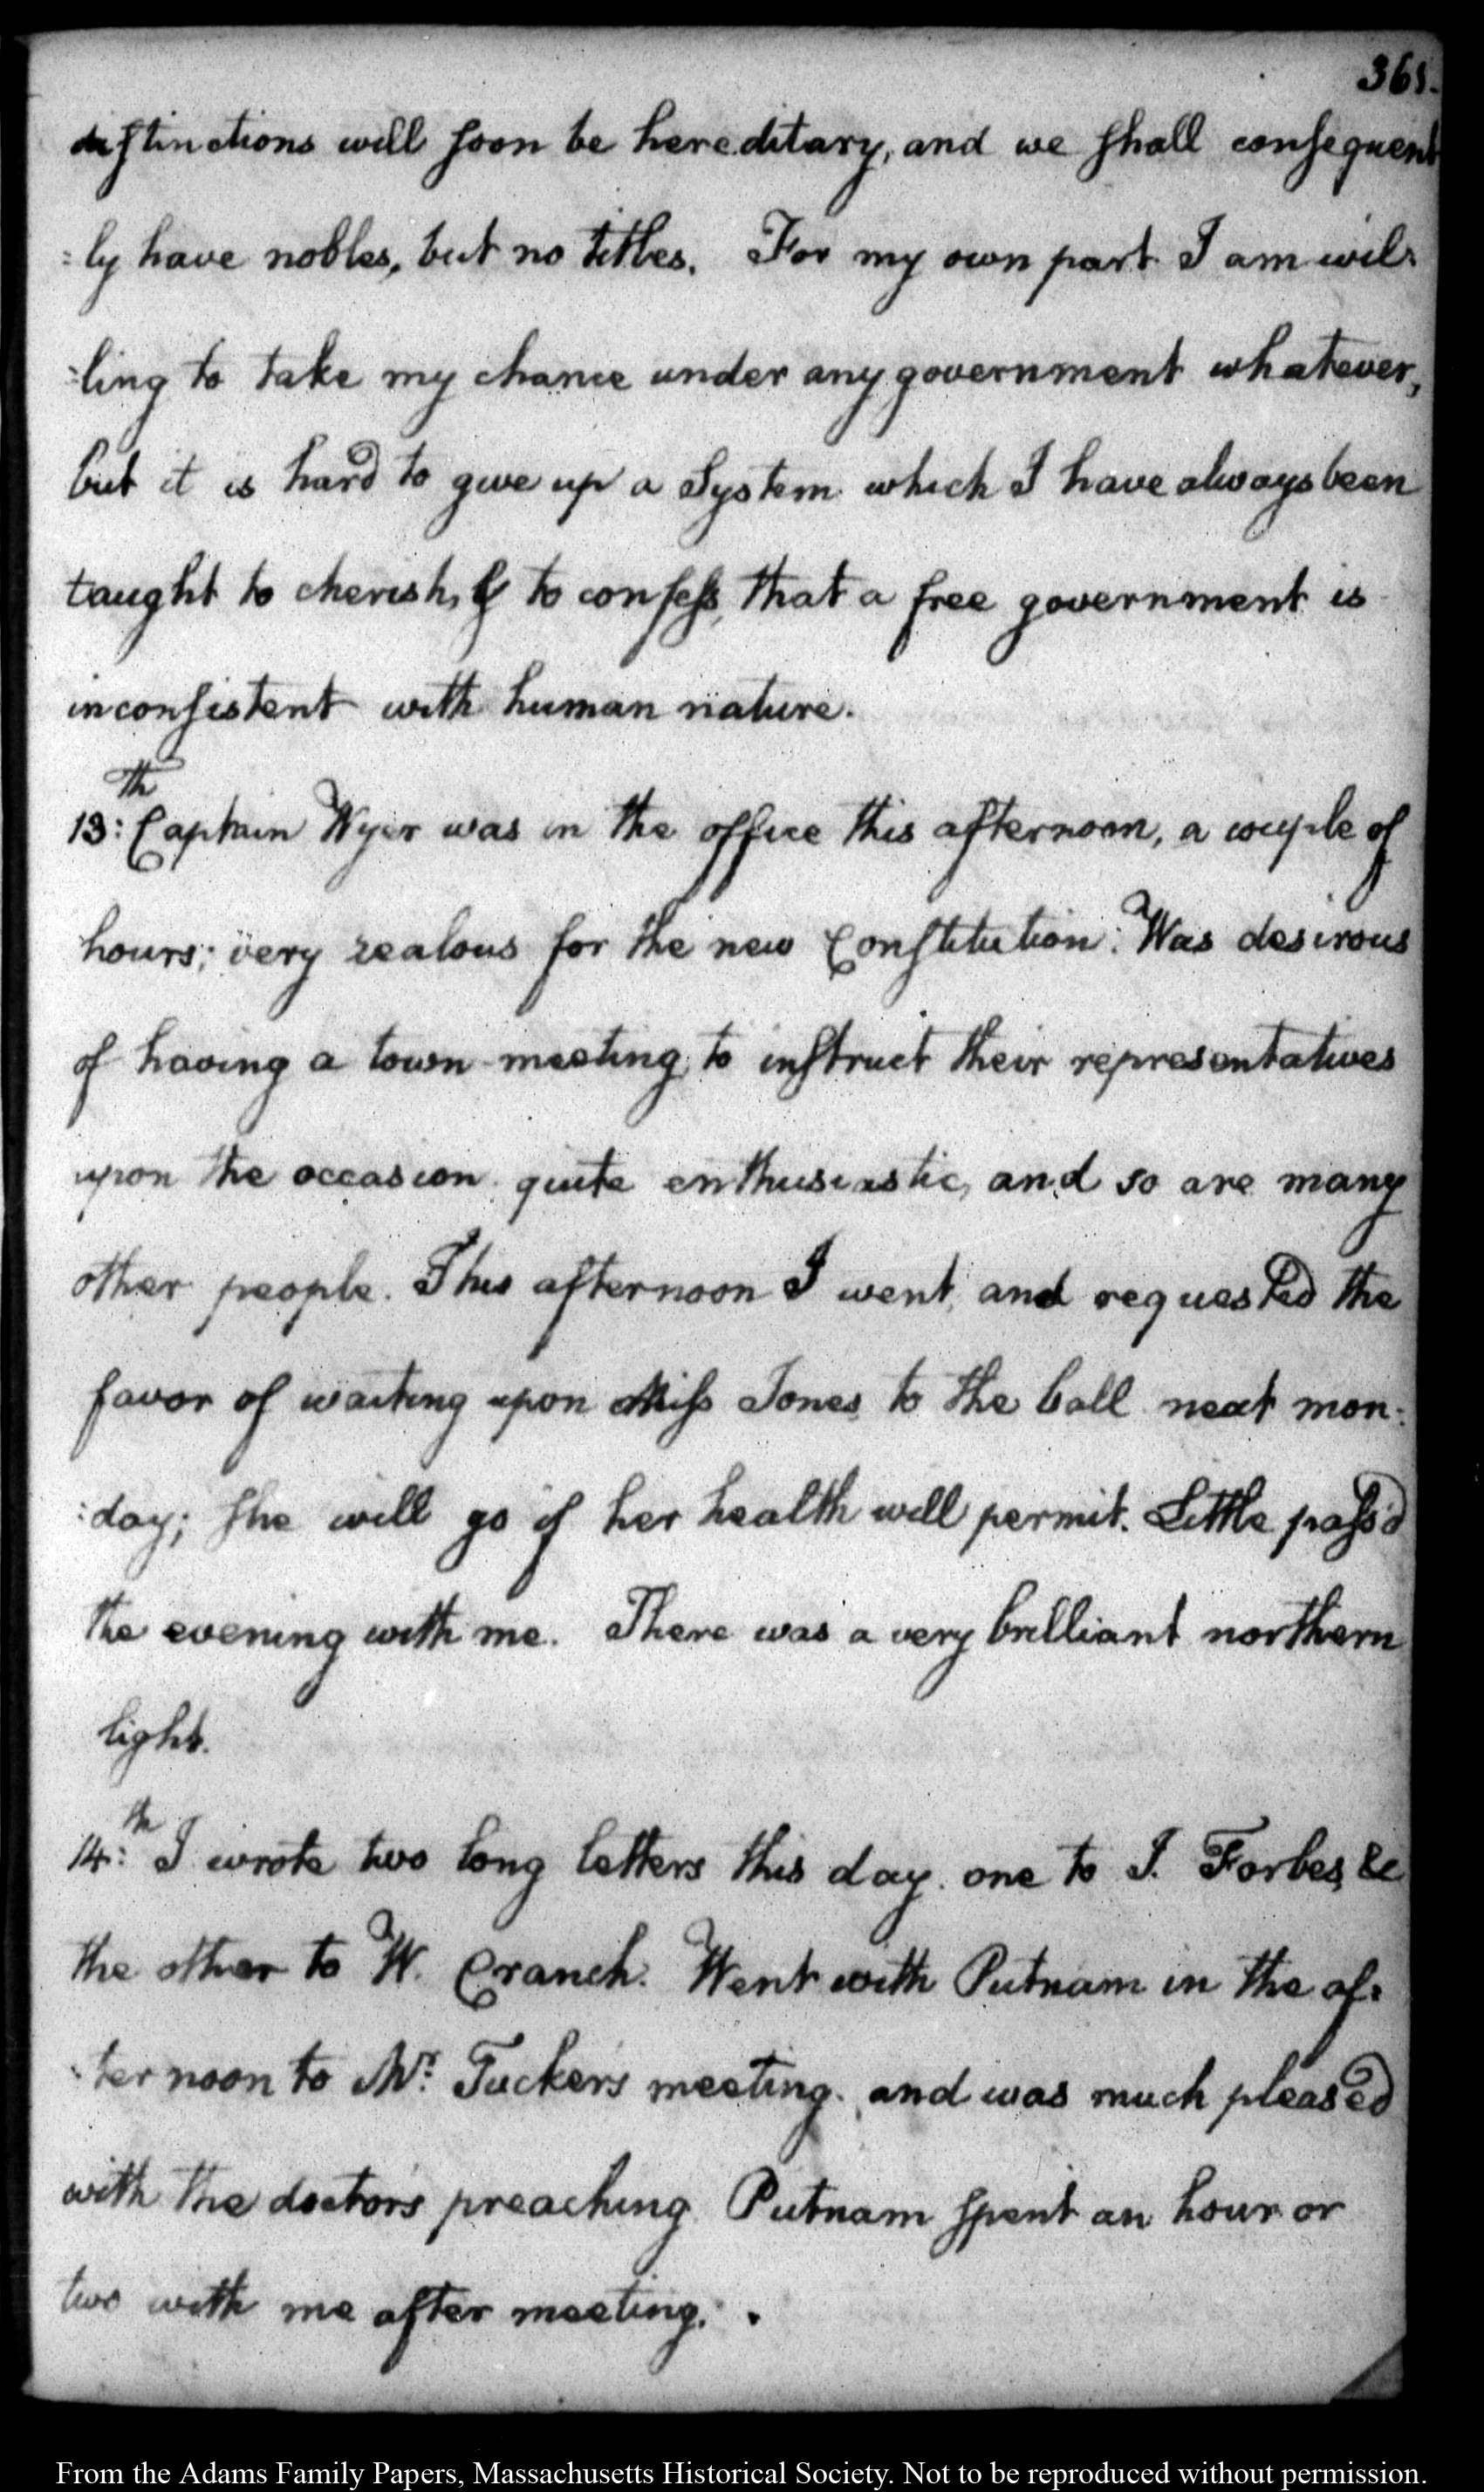 365.
distinctions will soon be hereditary, and we shall consequent
:ly have nobles, but no titles. For my own part I am wil:
:ling to take my chance under any government whatever,
but it is hard to give up a System which I have always been
taught to cherish, & to confess, that a free government is
inconsistent with human nature.
13:th Captain Wyer was in the office this afternoon, a couple of
hours; very zealous for the new Constitution: Was desirous
of having a town-meeting, to instruct their representatives
upon the occasion. quite enthusiastic, and so are many
other people. This afternoon I went, and requested the
favor of waiting upon Miss Jones, to the ball next mon:
:day; she will go if her health will permit. Little pass'd
the evening with me. There was a very brilliant northern
light.
14:th I wrote two long letters this day. one to J. Forbes, &
the other to W. Cranch. Went with Putnam in the af:
:ternoon to Mr. Tucker's meeting. and was much pleased
with the doctor's preaching Putnam spent an hour or
two with me after meeting.
From the Adams Family Papers, Massachusetts Historical Society. Not to be reproduced without permission.